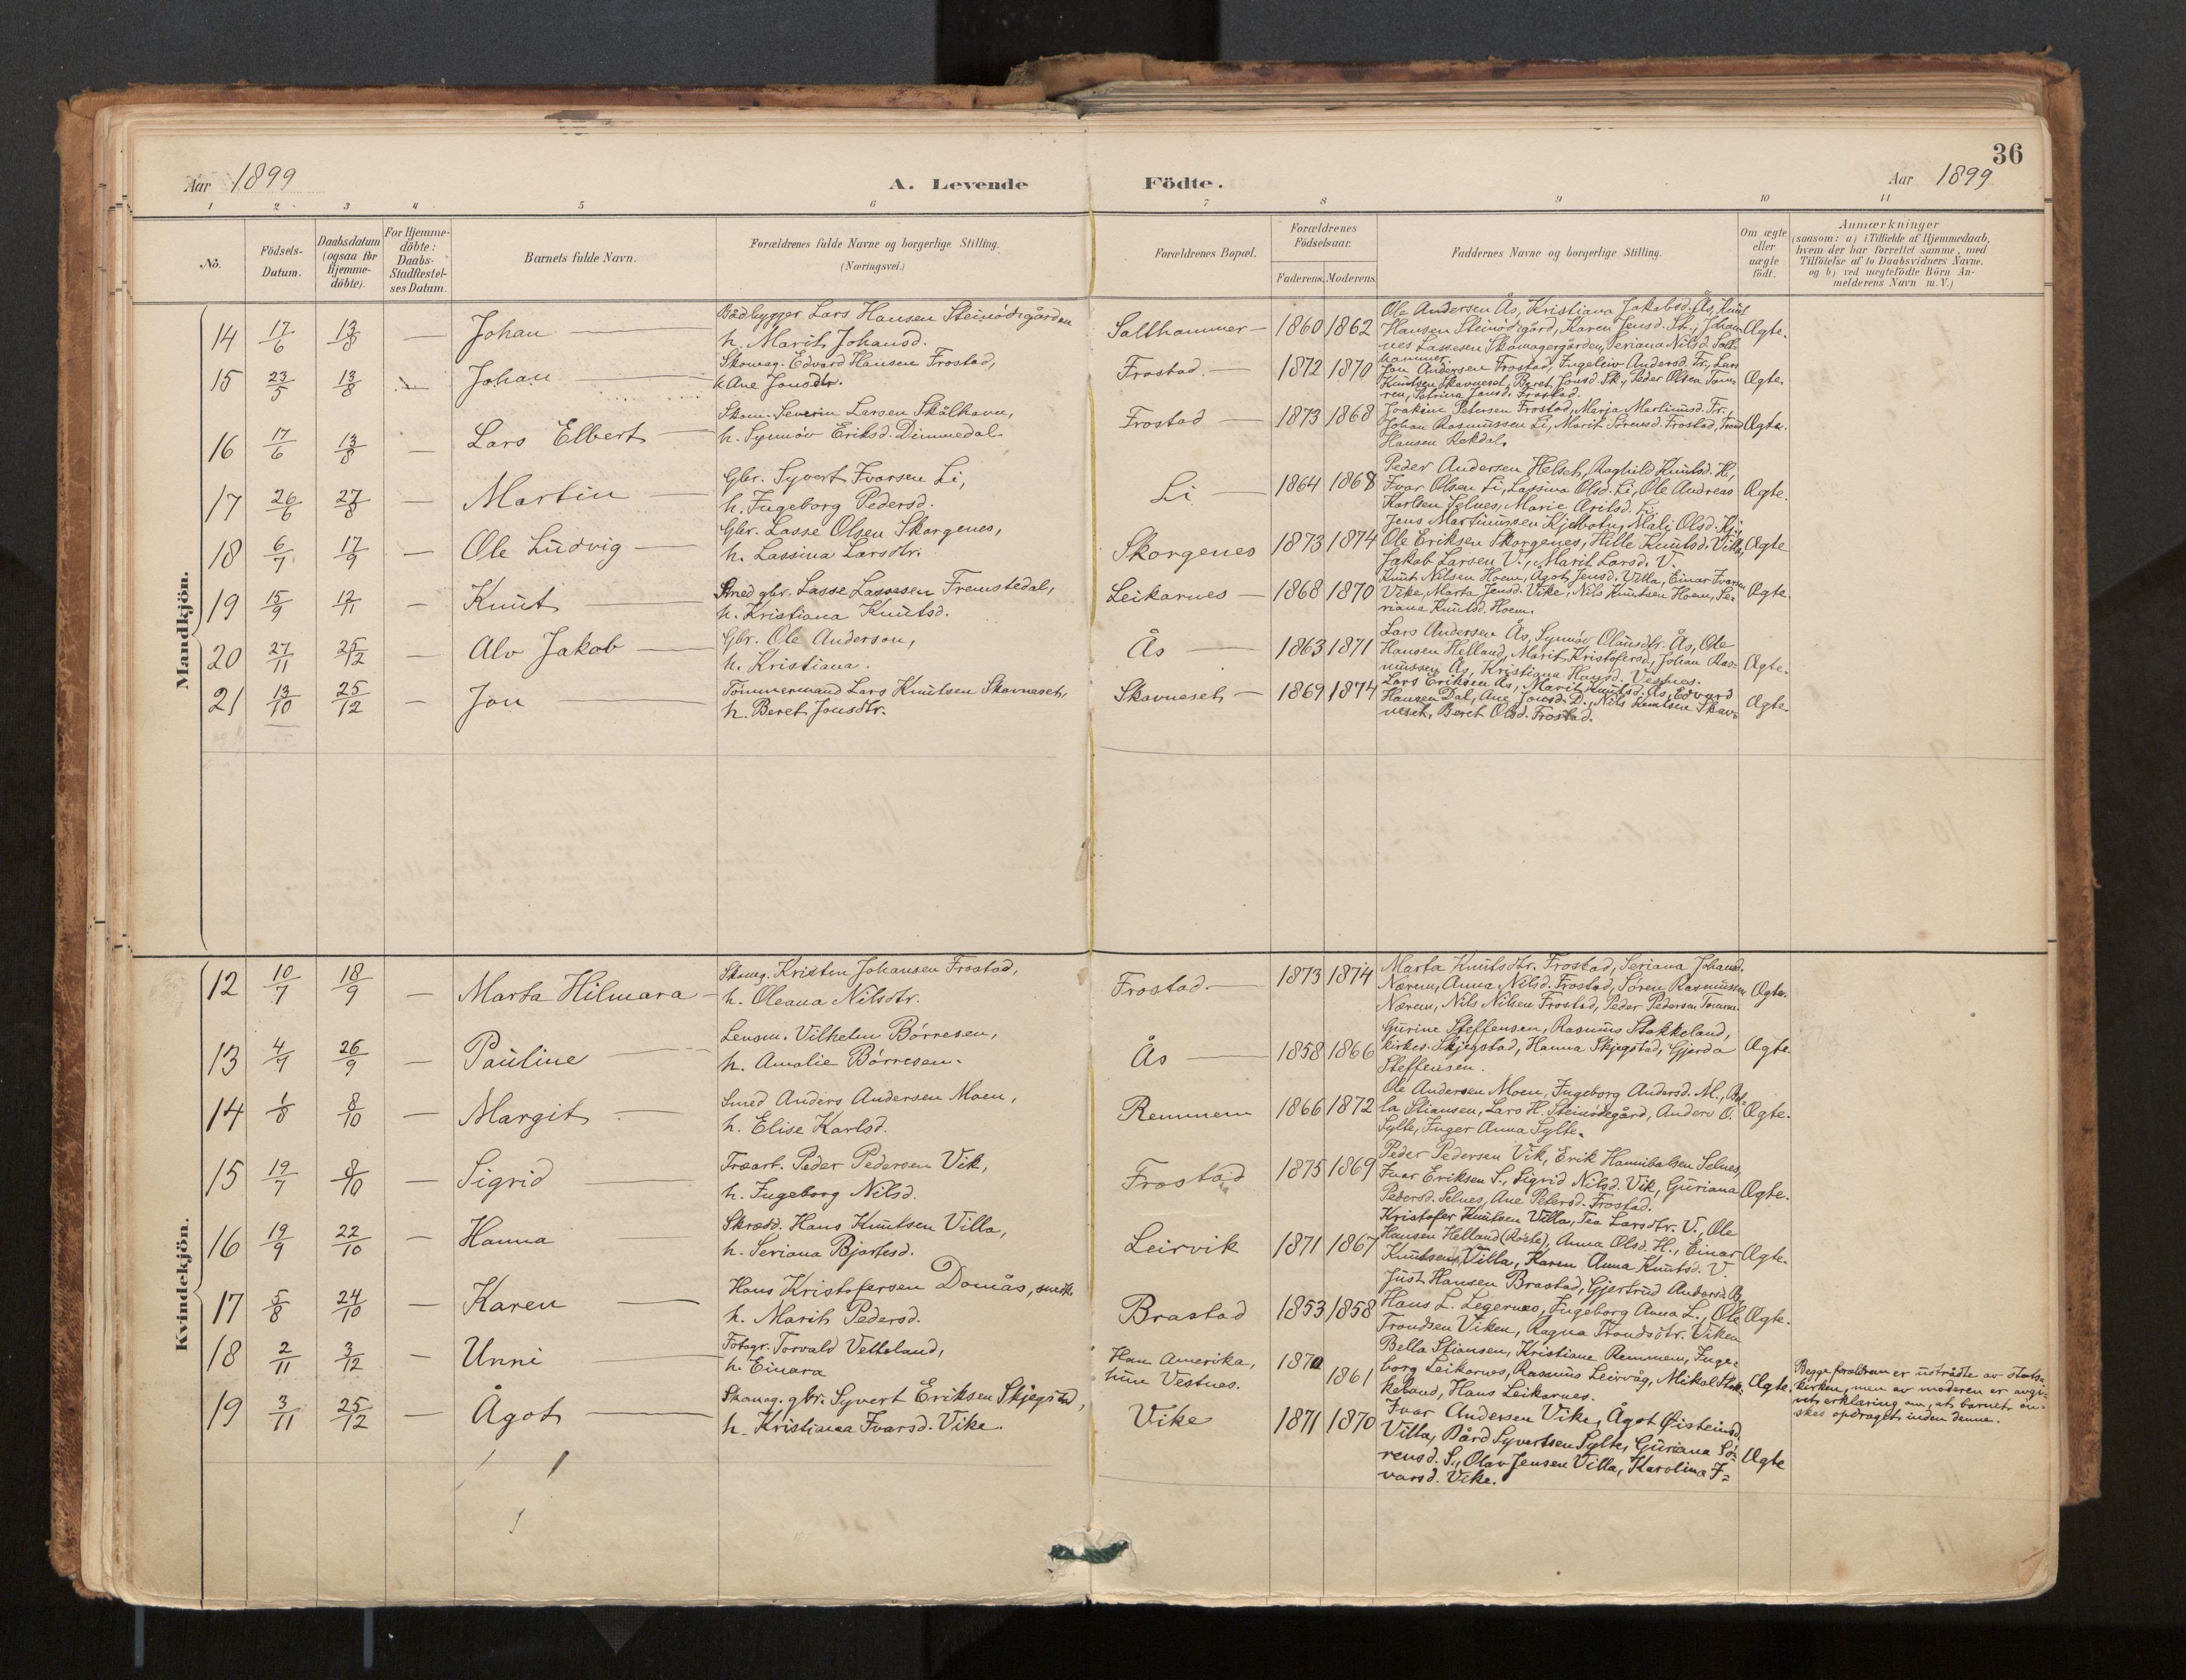 36
Aar 1899 A. Levende Födte. Aar 1899
1 2 3 4 5 6 7 8 9 10 11
No.
Födsels-
Datum.
Daabsdatum
(ogsaa for
Hjemme-
döbte).
For Hjemme-
döbte:
Daabs-
Stadfæstel-
ses Datum.
Barnets fulde Navn.
Forældrenes fulde Navne og borgerlige Stilling.
(Næringsvei.)
Forældrenes Bopæl.
Forældrenes
Födselsaar.
Faderens. Moderens.
Faddernes Navne og borgerlige Stilling.
Om ægte
eller
uægte
födt.
Anmærkninger
(saasom: a) i Tilfælde af Hjemmedaab,
hvem der har forrettet samme, med
Tilföielse af to Daabsvidners Navne.
og b) ved uægtefödte Börn An-
melderens Navn m.V.)
Mandkjön.
14 17/6 13/8 — Johan
Bådbygger Lars Hansen Steinödegården
h. Marit Johansd.
Salthammer — 1860 1862
Ole Andersen Ås, Kristiana Jakobsd. Ås, Knut
Hansen Steinödegård, Karen Jensd. St., Johan-
nes Lassesen Skomagergården, Seriana Nilsd. Salt-
hammer.
Ægte.
15 23/5 13/8 Johan
Skomag. Edvard Hansen Frostad,
h. Ane Jonsdtr.
Frostad. — 1872 1870
Jon Andersen Frostad, Ingeliv Andersd. Fr., Lars
Knutsen Skavneset, Beret Jonsd. Sk., Peder Olsen Tom-
ren, Petrina Jonsd. Frostad.
Ægte.
16 17/6 13/8 — Lars Elbert
Skom. Severin Larsen Skålhavn,
h. Synnöv Eriksd. Dimmedal
Frostad — 1873 1868
Joakim Petersen Frostad, Marja Martinusd. Fr.,
Johan Rasmussen Li, Marit Sörensd. Frostad, Trond
Hansen Rekdal.
Ægte.
17 26/6 27/8 — Martin
Gbr. Syvert Ivarsen Li,
h. Ingeborg Pedersd.
Li — 1864 1868
Peder Andersen Helset, Ragnhild Knutsd. H.,
Ivar Olsen Li, Lassina Olsd. Li, Ole Andreas
Karlsen Sylnes, Marie Arilsd. Li.
Ægte.
18 6/7 17/9 — Ole Ludvig
Gbr. Lasse Olsen Skorgenes,
h. Lassina Larsdtr.
Skorgenes 1873 1874
Jens Martinussen Kjelbotn, Mali Olsd. Kj.,
Ole Eriksen Skorgenes, Hille Knutsd. Villa,
Jakob Larsen V., Marit Larsd. V.
Ægte
19 15/9 12/11 — Knut
Smed gbr. Lasse Lassesen Fremstedal,
h. Kristiana Knutsd.
Leikarnes — 1868 1870
Knut Nilsen Hoem, Ågot Jensd. Villa, Einar Ivarsen
Vike, Marta Jensd. Vike, Nils Knutsen Hoem, Se-
riana Knutsd. Hoem.
Ægte.
20 27/11 25/12 — Alv Jakob
Gbr. Ole Anderson,
h. Kristiana.
Ås — 1863 1871
Lars Andersen Ås, Synnöv Olausdtr. Ås, Ole
Hansen Helland, Marit Kristofersd., Johan Ras-
mussen Ås, Kristiane Hansd. Vestnes.
Ægte.
21 13/10 25/12 — Jon
Tömmermand Lars Knutsen Skavneset,
h. Beret Jonsdtr.
Skavneset — 1869 1874
Lars Eriksen Ås, Marit Knutsd. Ås, Edvard
Hansen Dal, Ane Jonsd. D., Nils Knutsen Skav-
neset, Beret Olsd. Frostad.
Ægte.
Kvindekjön.
12 10/7 18/9 — Marta Hilmara
Skomg. Kristen Johansen Frostad,
h. Oleana Nilsdtr.
Frostad. — 1873 1874
Marta Knutsdtr. Frostad, Seriana Johansd.
Nærem, Anna Nilsd. Frostad, Sören Rasmussen
Nærem, Nils Nilsen Frostad, Peder Pedersen Tomren
Ægte.
13 4/7 26/9 — Pauline
Lensm. Vilhelm Börresen,
h. Amalie Börresen.
Ås — 1858 1866
Gurine Steffensen, Rasmus Stokkeland,
kirkes. Skjegstad, Hanna Skjegstad, Gjerda
Steffensen.
Ægte.
14 1/8 8/10 — Margit
Smed Anders Andersen Moen,
h. Elise Karlsd.
Remmem 1866 1872
Ole Andersen Moen, Ingeborg Andersd. M., Bel-
la Stiansen, Lars H. Steinödegård, Anders O.
Sylte, Inger Anna Sylte.
Ægte.
15 19/7 8/10 — Sigrid
Træarb. Peder Pedersen Vik,
h. Ingeborg Nilsd.
Frostad 1875 1869
Peder Pedersen Vik, Erik Hannibalsen Selnes,
Ivar Eriksen S., Sigrid Nilsd. Vik, Guriana
Pedersd. Selnes, Ane Petersd. Frostad.
Ægte.
16 19/9 22/10 — Hanna
Skrædd. Hans Knutsen Villa,
h. Seriana Bjartesd.
Leirvik 1871 1867
Kristofer Knutsen Villa, Tea Larsdtr. V., Ole
Hansen Helland (Röste), Anna Olsd. H., Einar
Knutsen Villa, Karen Anna Knutsd. V.
Ægte.
17 5/8 24/10 — Karen
Hans Kristofersen Domås, smed
h. Marit Pedersd.
Brastad 1853 1858
Just Hansen Brastad, Gjertrud Andersd. B.,
Hans L. Legernes, Ingeborg Anna L., Ole
Trondsen Viken, Ragna Trondsdtr. Viken
Ægte.
18 2/11 3/12 — Unni
Fotogr. Torvald Velteland,
h. Einara
Han Amerika,
hun Vestnes.
1870 1861
Bella Stiansen, Kristiane Remmem, Inge-
borg Leikarnes, Rasmus Leirvåg, Mikal Stok-
keland, Hans Leikarnes.
Ægte.
Begge forældrene er utrådte av stats-
kirken, men av moderen er avgi-
vet erklæring om, at barnet ön-
skes opdraget inden denne.
19 3/11 25/12 — Ågot
Skomag. gbr. Syvert Eriksen Skjegstad,
h. Kristianna Ivarsd. Vike.
Vike 1871 1870
Ivar Andersen Vike, Ågot Øisteinsd.
Villa, Bård Syvertsen Sylte, Guriana Sö-
rensd. S., Olav Jensen Villa, Karolina I-
varsd. Vike.
Ægte